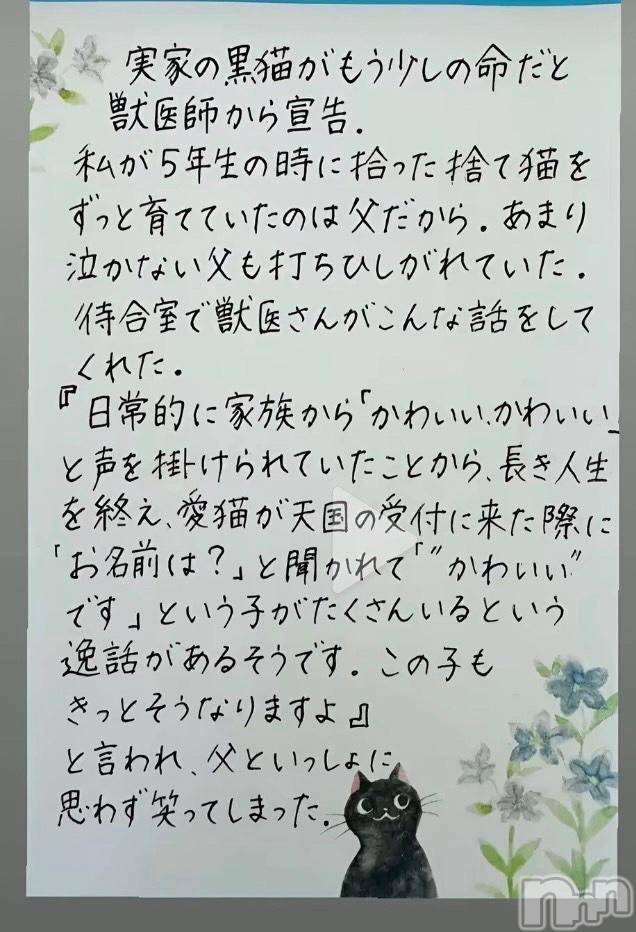 実家の黒猫がもう少しの命だと
獣医師から宣告.
私が5年生の時に拾った捨て猫を
ずっと育てていたのは父だから.あまり
泣かない父も打ちひしがれていた.
待合室で獣医さんがこんな話をして
くれた.
『日常的に家族から「かわいい、かわいい」
と声を掛けられていたことから、長き人生
を終え、愛猫が天国の受付に来た際に
「お名前は?」と聞かれて「"かわいい"
です」という子がたくさんいるという
逸話があるそうです.この子も
きっとそうなりますよ』
と言われ、父といっしょに
思わず笑ってしまった.